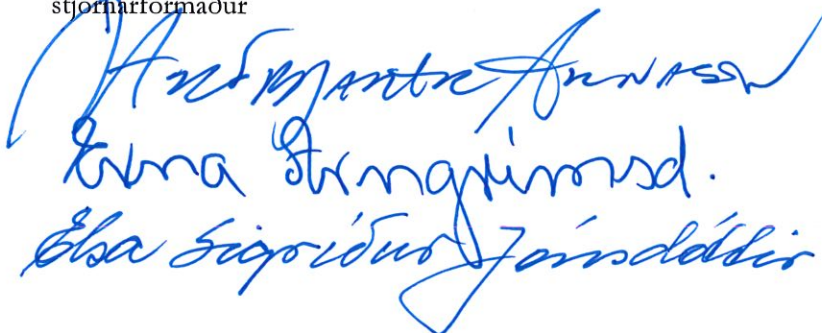 stjórnarformaður
Arnason
Erna Steingrímsd.
Elsa Sigríður Jónsdóttir